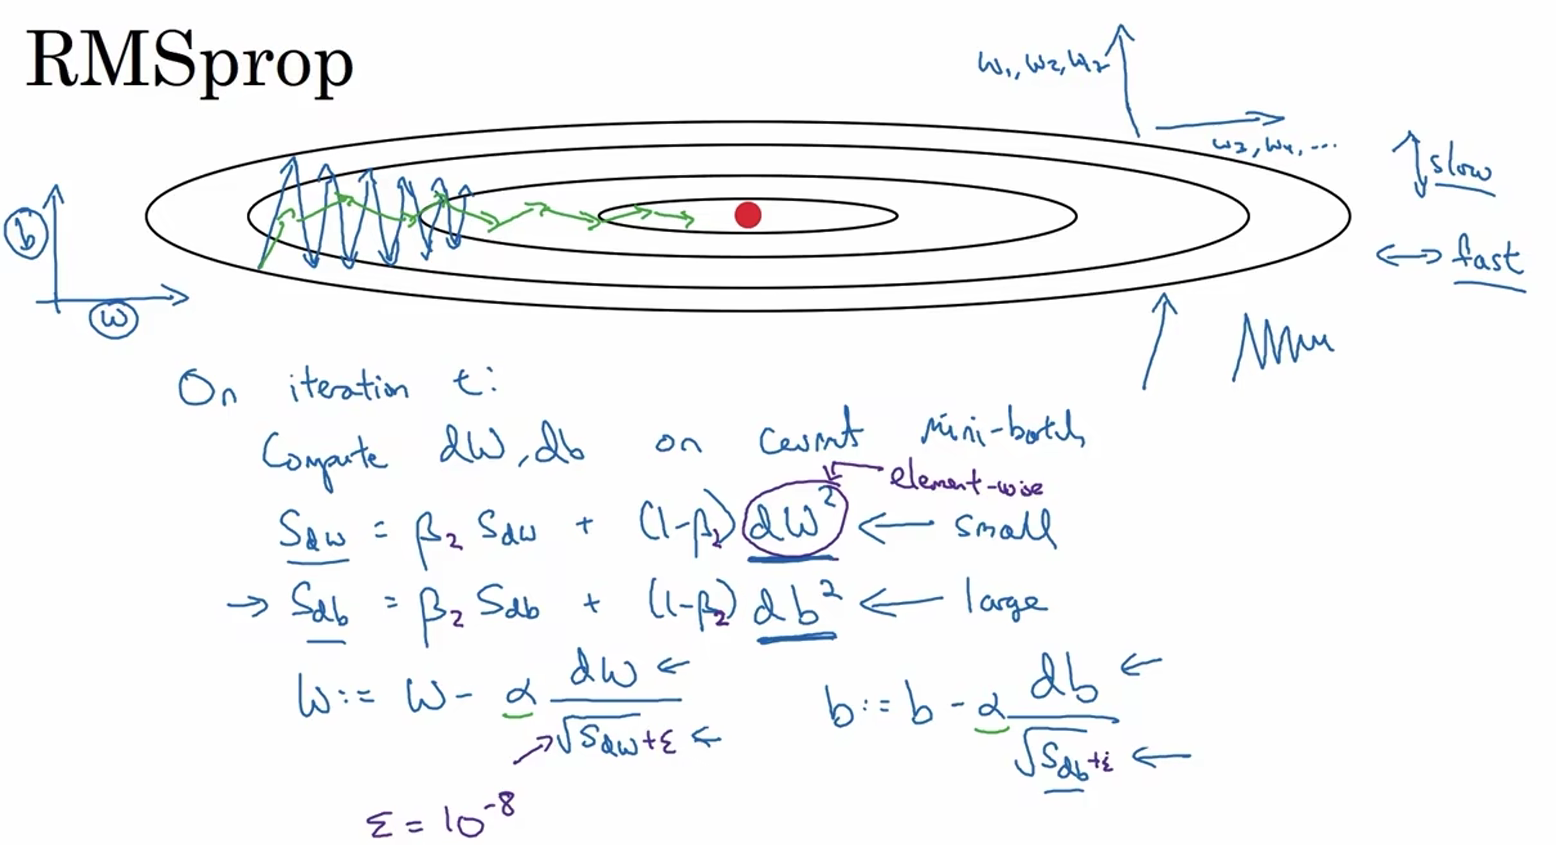 RMSprop
w₁, w₂, w₁₂
w₃, w₄, ...
slow
b
fast
w
On iteration t:
Compute dW, db on current mini-batch
element-wise
S_dw = β₂ S_dw + (1-β₂) dW² ← small
→ S_db = β₂ S_db + (1-β₂) db² ← large
W := W - α dW / √S_dw + ε ←
b := b - α db / √S_db + ε ←
ε = 10⁻⁸